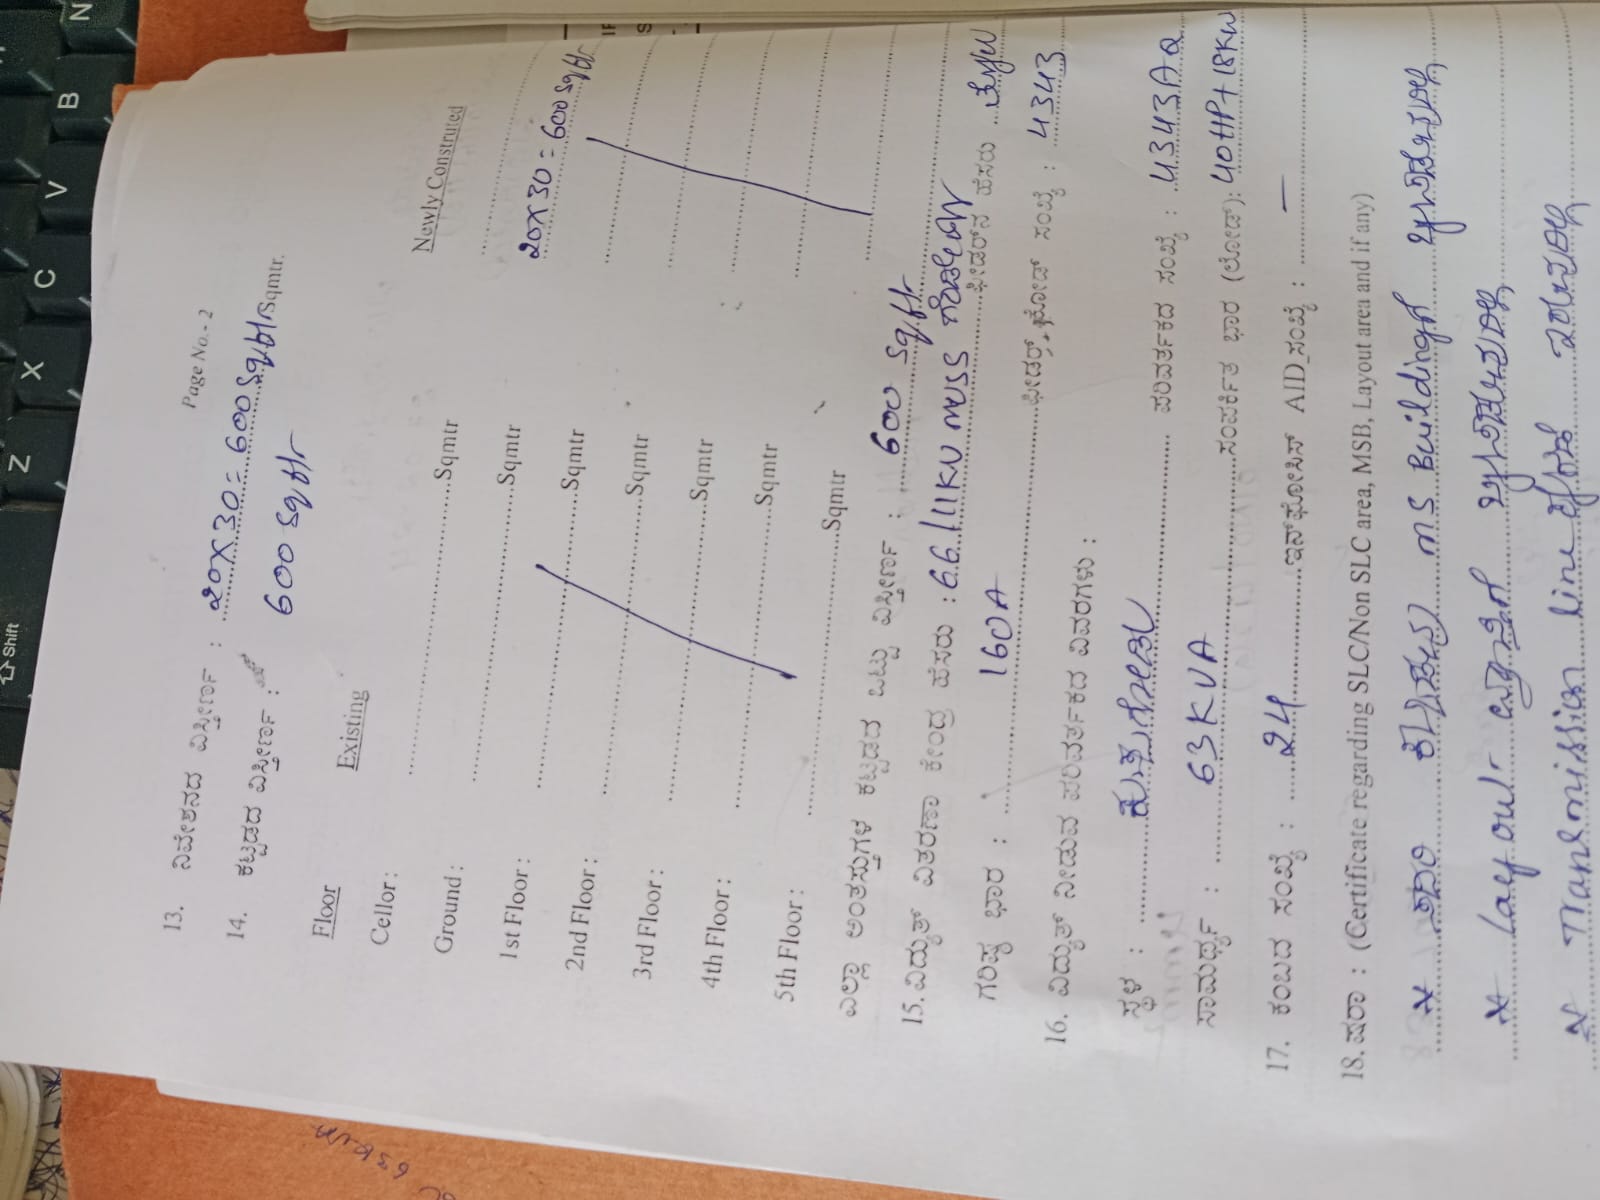 Page No.- 2
13. ನಿವೇಶನದ ವಿಸ್ತೀರ್ಣ : 20X30=600 Sqft/Sqmtr.
14. ಕಟ್ಟಡದ ವಿಸ್ತೀರ್ಣ : 600 Sqft
Floor Existing Newly Construted
Cellor : Sqmtr
Ground : Sqmtr 20X30=600 Sqft
1st Floor : Sqmtr
2nd Floor : Sqmtr
3rd Floor : Sqmtr
4th Floor : Sqmtr
5th Floor : Sqmtr
ಎಲ್ಲಾ ಅಂತಸ್ತುಗಳ ಕಟ್ಟಡದ ಒಟ್ಟು ವಿಸ್ತೀರ್ಣ : 600 Sqft
15. ವಿದ್ಯುತ್ ವಿತರಣಾ ಕೇಂದ್ರ ಹೆಸರು : 66/11KV MUSS ಫೀಡರ್‌ನ ಹೆಸರು
ಗರಿಷ್ಠ ಭಾರ : 160A ಫೀಡರ್ ಕೋಡ್ ಸಂಖ್ಯೆ : 4343
16. ವಿದ್ಯುತ್ ನೀಡುವ ಪರಿವರ್ತಕದ ವಿವರಗಳು :
ಸ್ಥಳ : ಪರಿವರ್ತಕದ ಸಂಖ್ಯೆ : 4343A2
ಸಾಮರ್ಥ್ಯ : 63 KVA ಸಂಪರ್ಕಿತ ಭಾರ (ಲೋಡ್): 40HP+18KW
17. ಕಂಬದ ಸಂಖ್ಯೆ : 24 ಇನ್‌ಫೋಸಿಸ್ AID ಸಂಖ್ಯೆ : —
18. ಷರಾ : (Certificate regarding SLC/Non SLC area, MSB, Layout area and if any)
* ಸದರಿ MS Buildingಗೆ ಒಳಪಡುವುದಿಲ್ಲ
* Layout ಒಳಪಡುವುದಿಲ್ಲ
* Transmission line ಇರುವುದಿಲ್ಲ